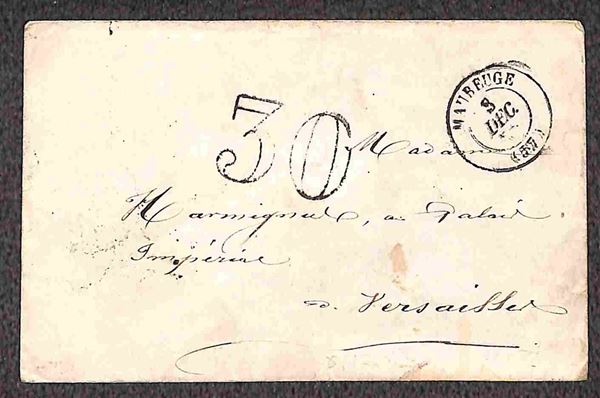 MAUBEUGE
8
DEC.
(57)
30
Madame
au Palais
Impérial
à Versailles